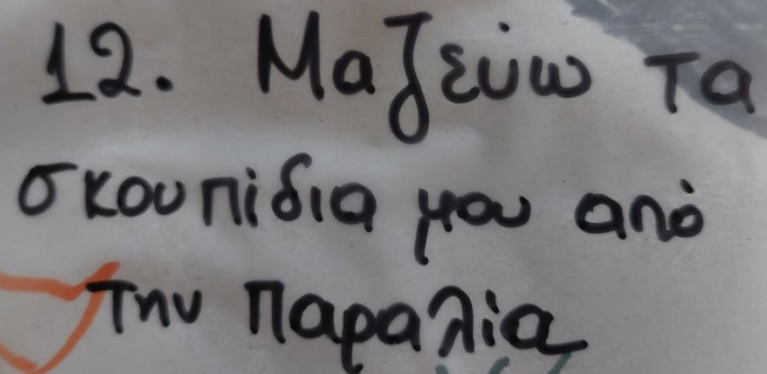 12. Μαζεύω τα
σκουπίδια μου από
την παραλία